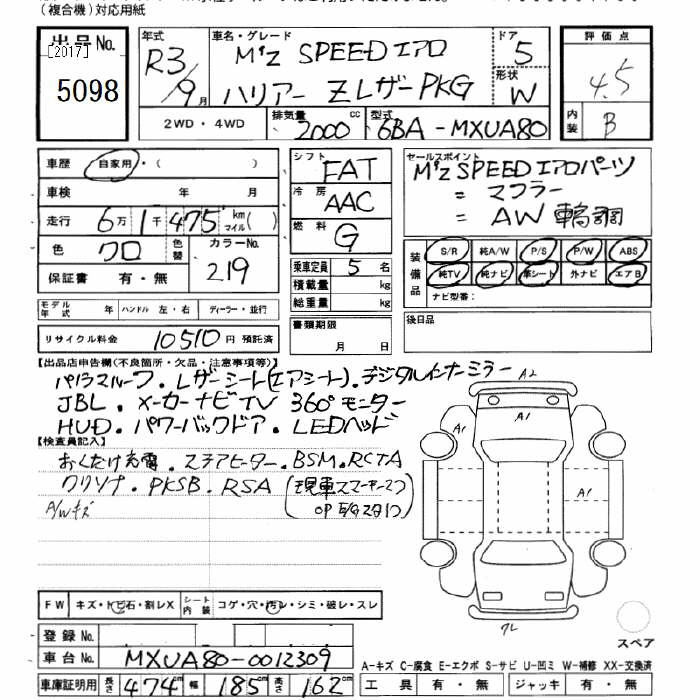 (複合機)対応用紙
出品No.
[2017]
5098
年式
R3/9月
車名・グレード
M'z SPEED エアロ
ハリアー Z レザーPKG
ドア
5
形状
W
評価点
4.5
内装
B
2WD・4WD
排気量
2000 cc
型式
6BA-MXUA80
車歴 自家用・( )
車検 年 月
走行 6万1千475 km マイル( )
色 クロ 色替 カラーNo. 219
保証書 有・無
モデル年式 年 ハンドル 左・右 ディーラー・並行
リサイクル料金 10510円 預託済
シフト FAT
冷房 AAC
燃料 G
乗車定員 5 名
積載量 kg
総重量 kg
書類期限
月 日
セールスポイント
M'z SPEED エアロパーツ
= マフラー
= AW 車高調
装備品
S/R 純A/W P/S P/W ABS
純TV 純ナビ 革シート 外ナビ エアB
ナビ型番:
後日品
【出品店申告欄(不良箇所・欠品・注意事項等)】
パノラマルーフ.レザーシート(エアシート).デジタルインナーミラー
JBL.メーカーナビTV 360°モニター
HUD.パワーバックドア.LEDヘッド
【検査員記入】
おくだけ充電.ステアヒーター.BSM.RCTA
クリソナ.PKSB.RSA
A/Wキズ
A2
A1
A1
A1
クレ
スペア
FW キズ・トビ石・割レX シート内装 コゲ・穴・汚レ・シミ・破レ・スレ
登録No.
車台No. MXUA80-0012309
車庫証明用 長さ 474cm 幅 185cm 高さ 162cm
A-キズ C-腐食 E-エクボ S-サビ U-凹ミ W-補修 XX-交換済
工具 有・無 ジャッキ 有・無